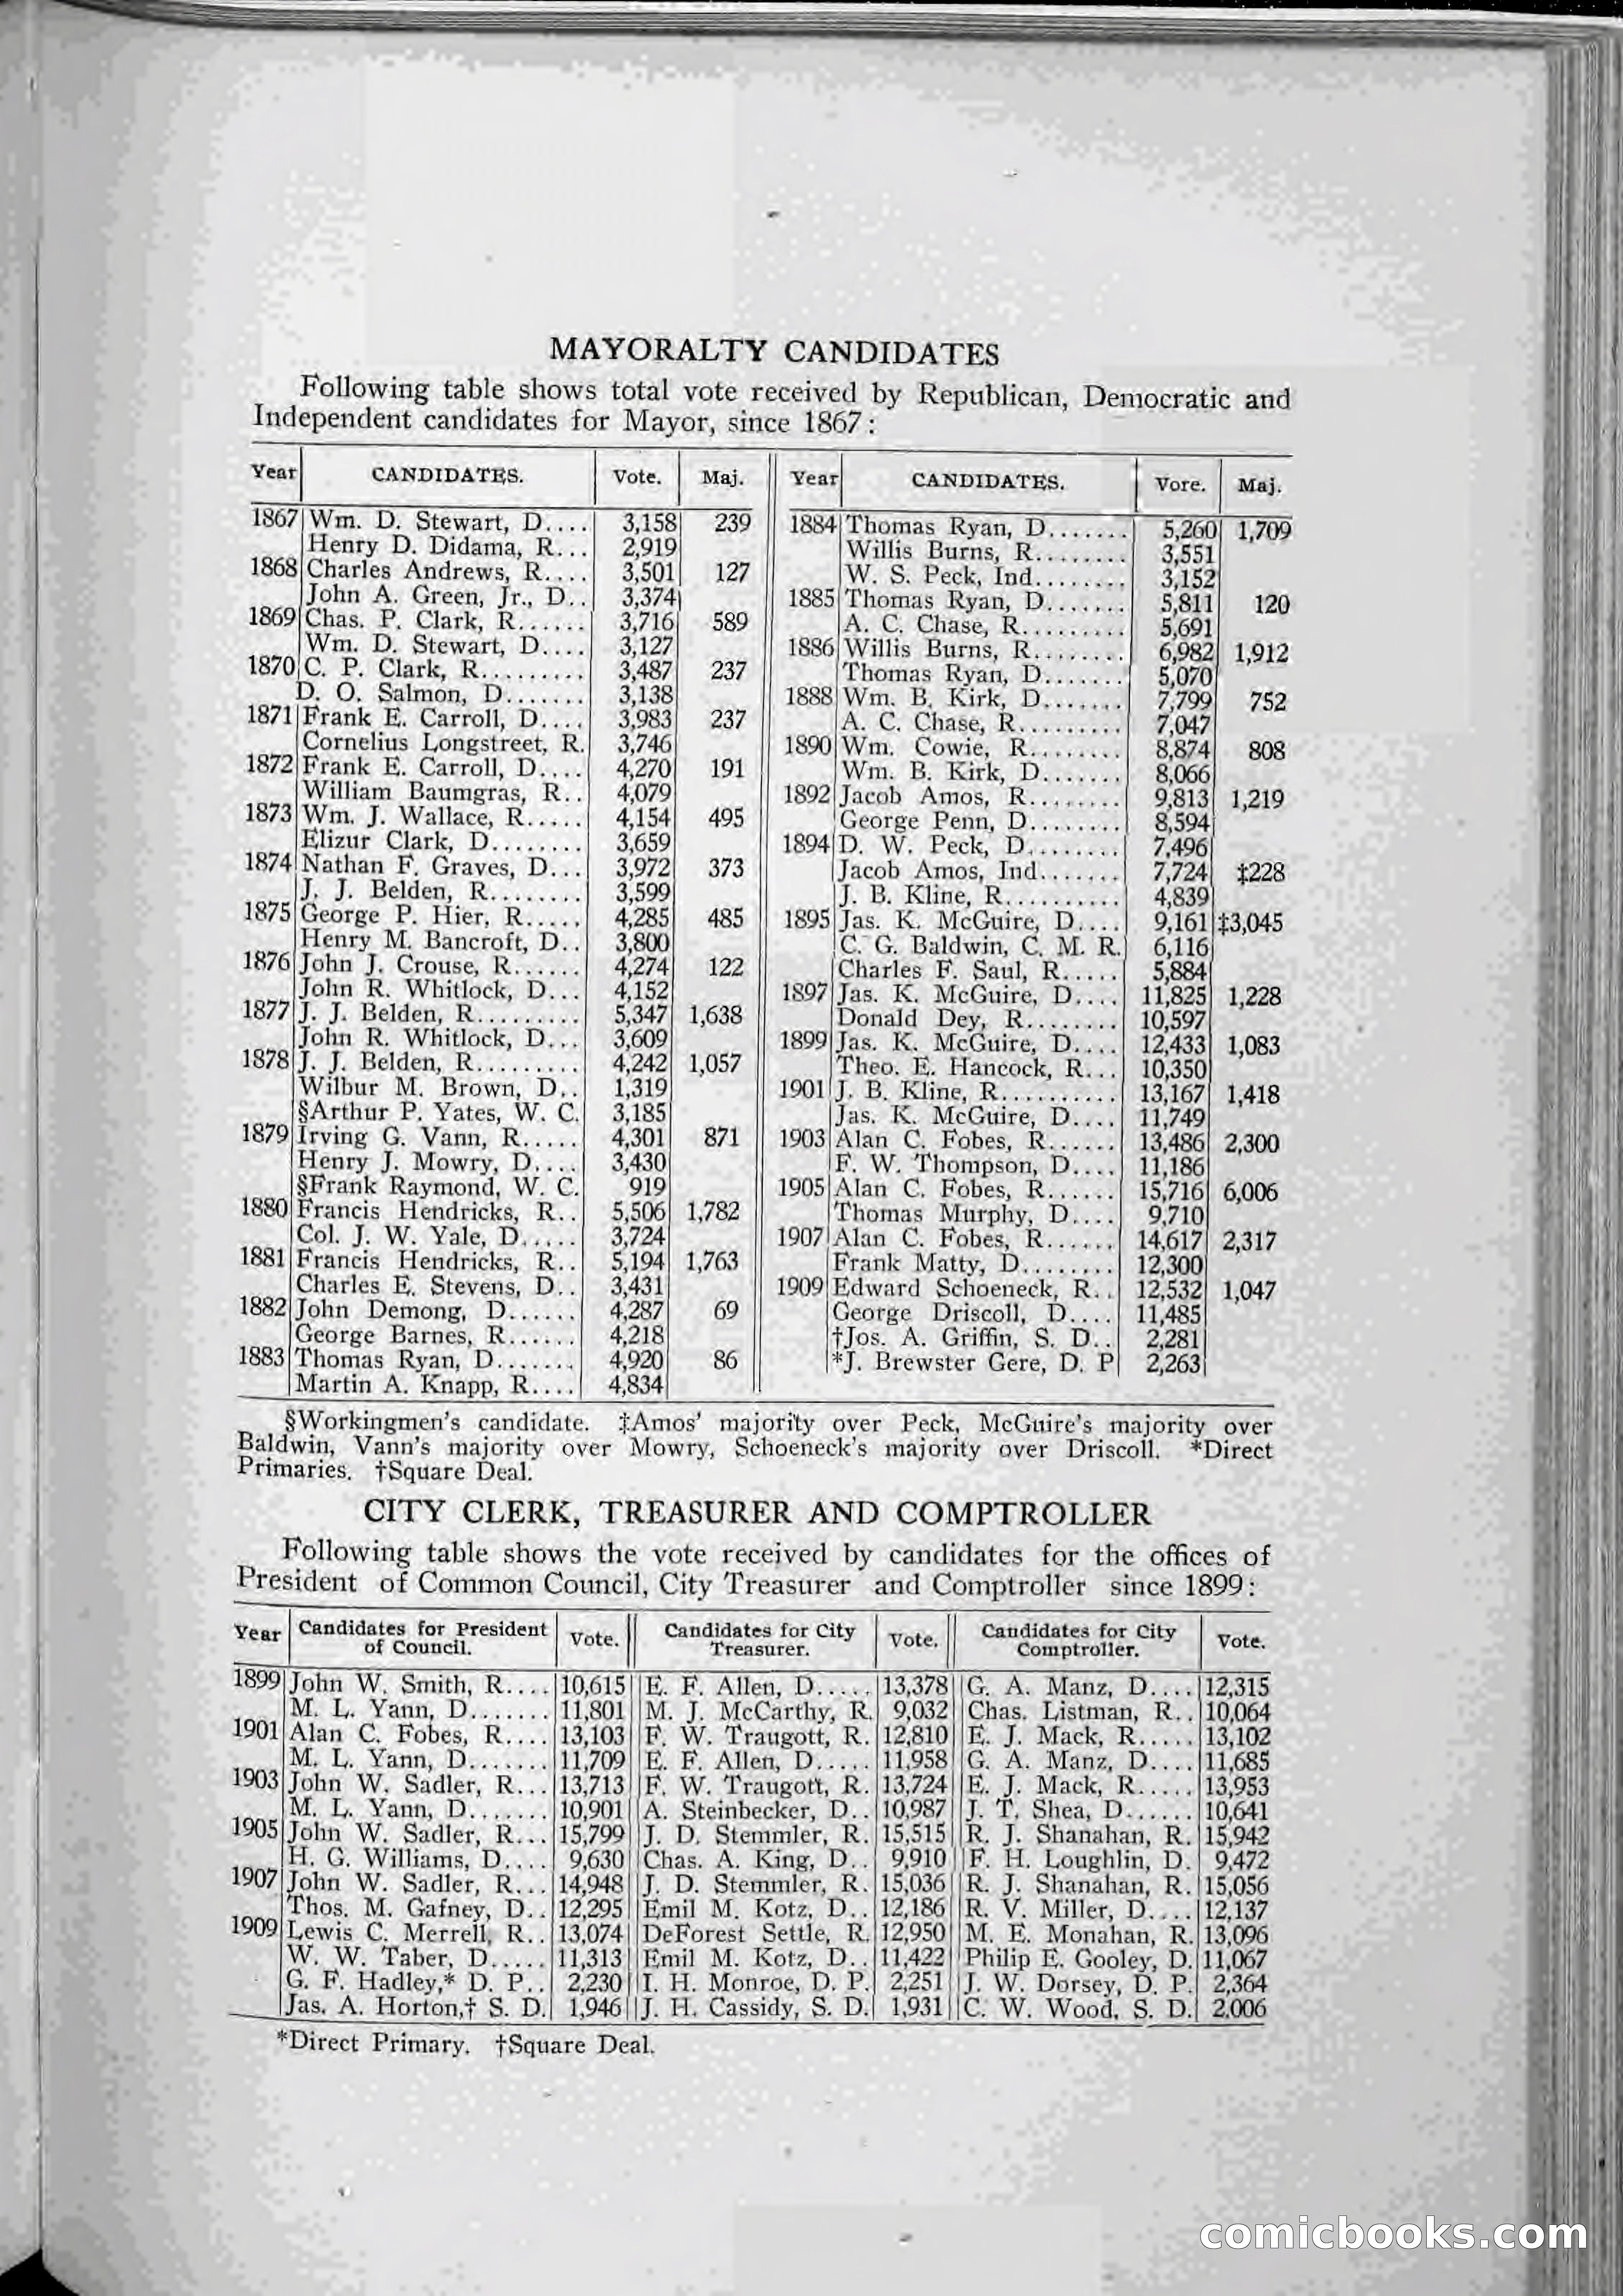 MAYORALTY CANDIDATES
Following table shows total vote received by Republican, Democratic and
Independent candidates for Mayor, since 1867:
Year CANDIDATES. Vote. Maj.
1867 Wm. D. Stewart, D.... 3,158 239
Henry D. Didama, R... 2,919
1868 Charles Andrews, R.... 3,501 127
John A. Green, Jr., D.. 3,374
1869 Chas. P. Clark, R...... 3,716 589
Wm. D. Stewart, D.... 3,127
1870 C. P. Clark, R......... 3,487 237
D. O. Salmon, D....... 3,138
1871 Frank E. Carroll, D.... 3,983 237
Cornelius Longstreet, R. 3,746
1872 Frank E. Carroll, D.... 4,270 191
William Baumgras, R.. 4,079
1873 Wm. J. Wallace, R..... 4,154 495
Elizur Clark, D........ 3,659
1874 Nathan F. Graves, D... 3,972 373
J. J. Belden, R........ 3,599
1875 George P. Hier, R..... 4,285 485
Henry M. Bancroft, D.. 3,800
1876 John J. Crouse, R...... 4,274 122
John R. Whitlock, D... 4,152
1877 J. J. Belden, R......... 5,347 1,638
John R. Whitlock, D... 3,609
1878 J. J. Belden, R......... 4,242 1,057
Wilbur M. Brown, D.. 1,319
§Arthur P. Yates, W. C. 3,185
1879 Irving G. Vann, R..... 4,301 871
Henry J. Mowry, D.... 3,430
§Frank Raymond, W. C. 919
1880 Francis Hendricks, R.. 5,506 1,782
Col. J. W. Yale, D..... 3,724
1881 Francis Hendricks, R.. 5,194 1,763
Charles E. Stevens, D.. 3,431
1882 John Demong, D...... 4,287 69
George Barnes, R...... 4,218
1883 Thomas Ryan, D....... 4,920 86
Martin A. Knapp, R.... 4,834
Year CANDIDATES. Vore. Maj.
1884 Thomas Ryan, D....... 5,260 1,709
Willis Burns, R........ 3,551
W. S. Peck, Ind........ 3,152
1885 Thomas Ryan, D....... 5,811 120
A. C. Chase, R......... 5,691
1886 Willis Burns, R........ 6,982 1,912
Thomas Ryan, D....... 5,070
1888 Wm. B. Kirk, D....... 7,799 752
A. C. Chase, R......... 7,047
1890 Wm. Cowie, R........ 8,874 808
Wm. B. Kirk, D....... 8,066
1892 Jacob Amos, R........ 9,813 1,219
George Penn, D........ 8,594
1894 D. W. Peck, D........ 7,496
Jacob Amos, Ind....... 7,724 ‡228
J. B. Kline, R.......... 4,839
1895 Jas. K. McGuire, D.... 9,161 ‡3,045
C. G. Baldwin, C. M. R. 6,116
Charles F. Saul, R..... 5,884
1897 Jas. K. McGuire, D.... 11,825 1,228
Donald Dey, R........ 10,597
1899 Jas. K. McGuire, D.... 12,433 1,083
Theo. E. Hancock, R... 10,350
1901 J. B. Kline, R.......... 13,167 1,418
Jas. K. McGuire, D.... 11,749
1903 Alan C. Fobes, R...... 13,486 2,300
F. W. Thompson, D.... 11,186
1905 Alan C. Fobes, R...... 15,716 6,006
Thomas Murphy, D.... 9,710
1907 Alan C. Fobes, R...... 14,617 2,317
Frank Matty, D........ 12,300
1909 Edward Schoeneck, R.. 12,532 1,047
George Driscoll, D.... 11,485
†Jos. A. Griffin, S. D.. 2,281
*J. Brewster Gere, D. P 2,263
§Workingmen's candidate. ‡Amos' majority over Peck, McGuire's majority over
Baldwin, Vann's majority over Mowry, Schoeneck's majority over Driscoll. *Direct
Primaries. †Square Deal.
CITY CLERK, TREASURER AND COMPTROLLER
Following table shows the vote received by candidates for the offices of
President of Common Council, City Treasurer and Comptroller since 1899:
Year Candidates for President of Council. Vote. Candidates for City Treasurer. Vote. Candidates for City Comptroller. Vote.
1899 John W. Smith, R.... 10,615 E. F. Allen, D..... 13,378 G. A. Manz, D.... 12,315
M. L. Yann, D....... 11,801 M. J. McCarthy, R. 9,032 Chas. Listman, R.. 10,064
1901 Alan C. Fobes, R.... 13,103 F. W. Traugott, R. 12,810 E. J. Mack, R..... 13,102
M. L. Yann, D....... 11,709 E. F. Allen, D..... 11,958 G. A. Manz, D.... 11,685
1903 John W. Sadler, R... 13,713 F. W. Traugott, R. 13,724 E. J. Mack, R..... 13,953
M. L. Yann, D....... 10,901 A. Steinbecker, D.. 10,987 J. T. Shea, D...... 10,641
1905 John W. Sadler, R... 15,799 J. D. Stemmler, R. 15,515 R. J. Shanahan, R. 15,942
H. G. Williams, D.... 9,630 Chas. A. King, D.. 9,910 F. H. Loughlin, D. 9,472
1907 John W. Sadler, R... 14,948 J. D. Stemmler, R. 15,036 R. J. Shanahan, R. 15,056
Thos. M. Gafney, D.. 12,295 Emil M. Kotz, D.. 12,186 R. V. Miller, D.... 12,137
1909 Lewis C. Merrell, R.. 13,074 DeForest Settle, R. 12,950 M. E. Monahan, R. 13,096
W. W. Taber, D..... 11,313 Emil M. Kotz, D.. 11,422 Philip E. Gooley, D. 11,067
G. F. Hadley,* D. P.. 2,230 I. H. Monroe, D. P. 2,251 J. W. Dorsey, D. P. 2,364
Jas. A. Horton,† S. D. 1,946 J. H. Cassidy, S. D. 1,931 C. W. Wood, S. D. 2,006
*Direct Primary. †Square Deal.
comicbooks.com